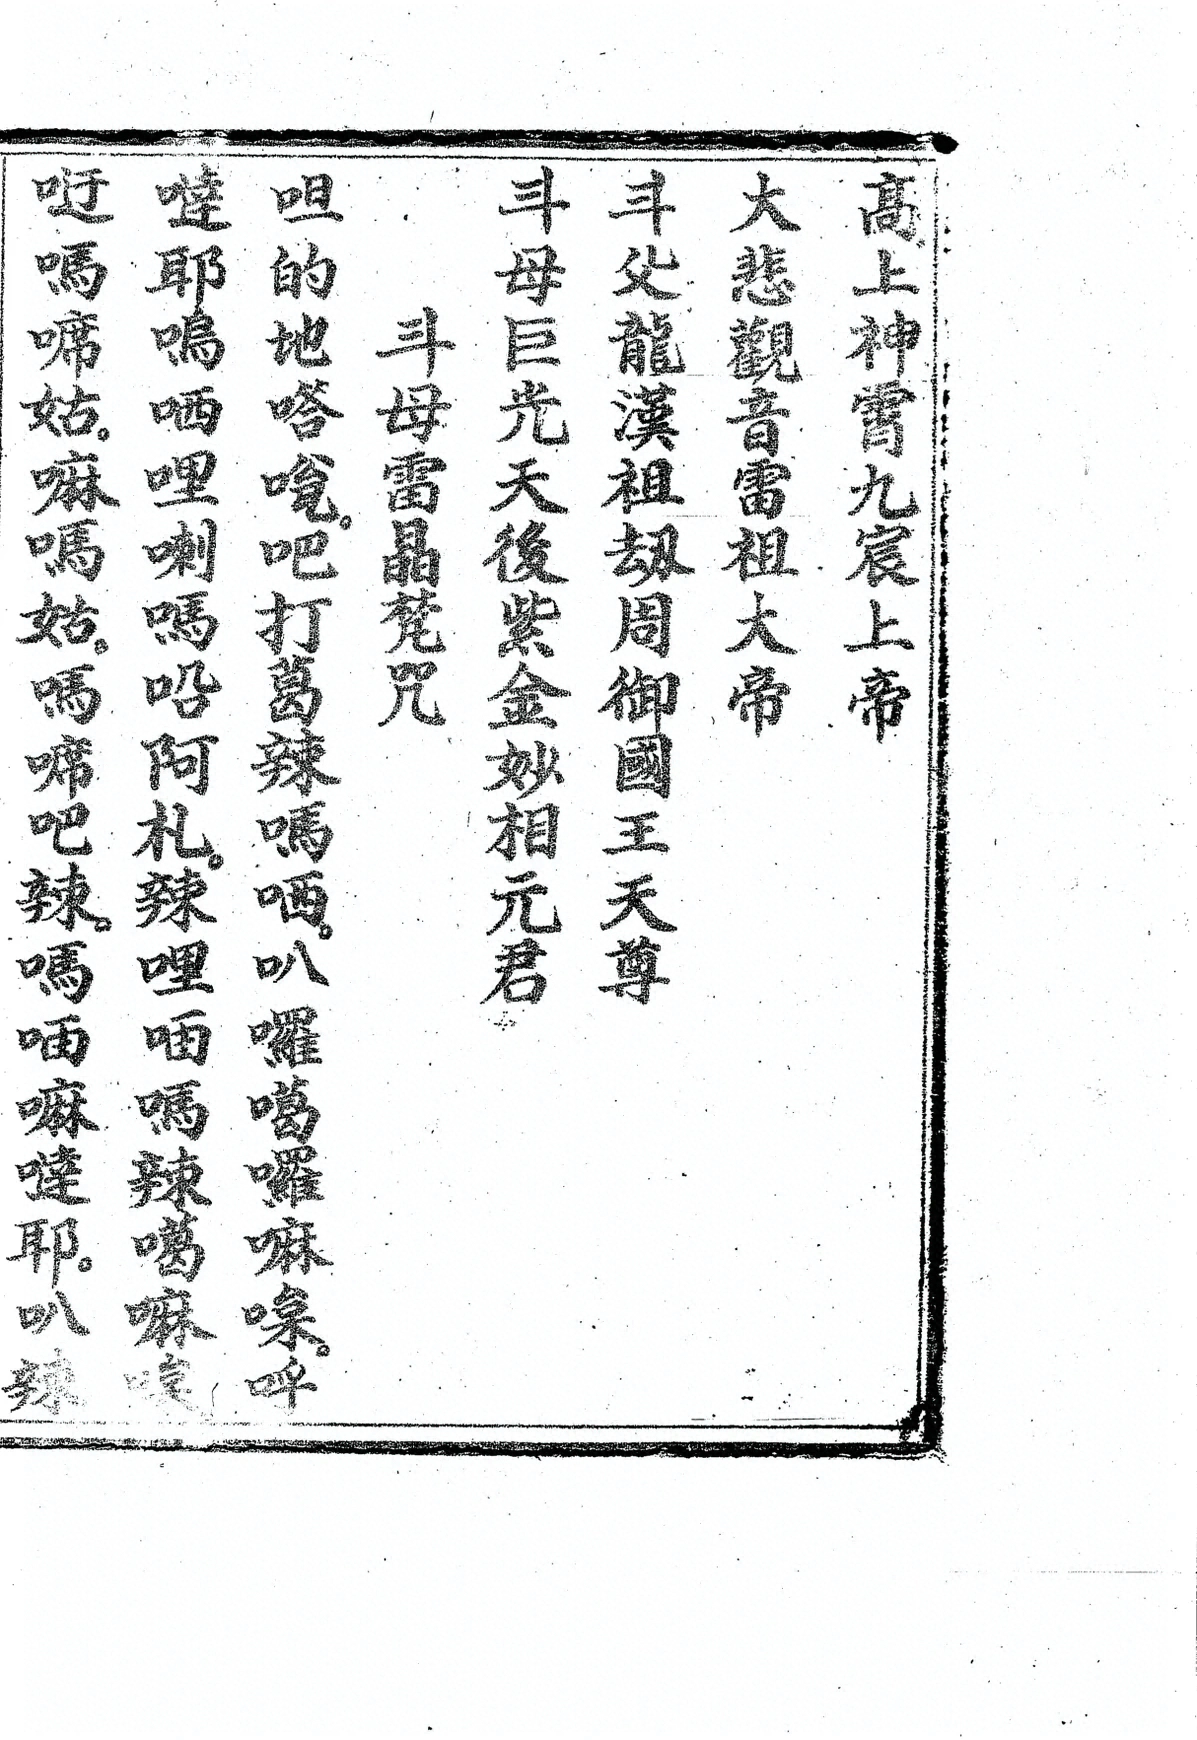 高上神霄九宸上帝
大悲觀音雷祖大帝
斗父龍漢祖劫周御國王天尊
斗母巨光天後紫金妙相元君
斗母雷晶梵咒
呾的地嗒吮。吧打葛辣嗎哂。叭囉噶囉嘛㗫。呼
噠耶嗚哂哩喇嗎哈阿札。辣哩唒嗎辣噶嘛
吁嗎㗭姑。嘛嗎姑。嗎㗭吧辣。嗎唒嘛噠耶。叭辣